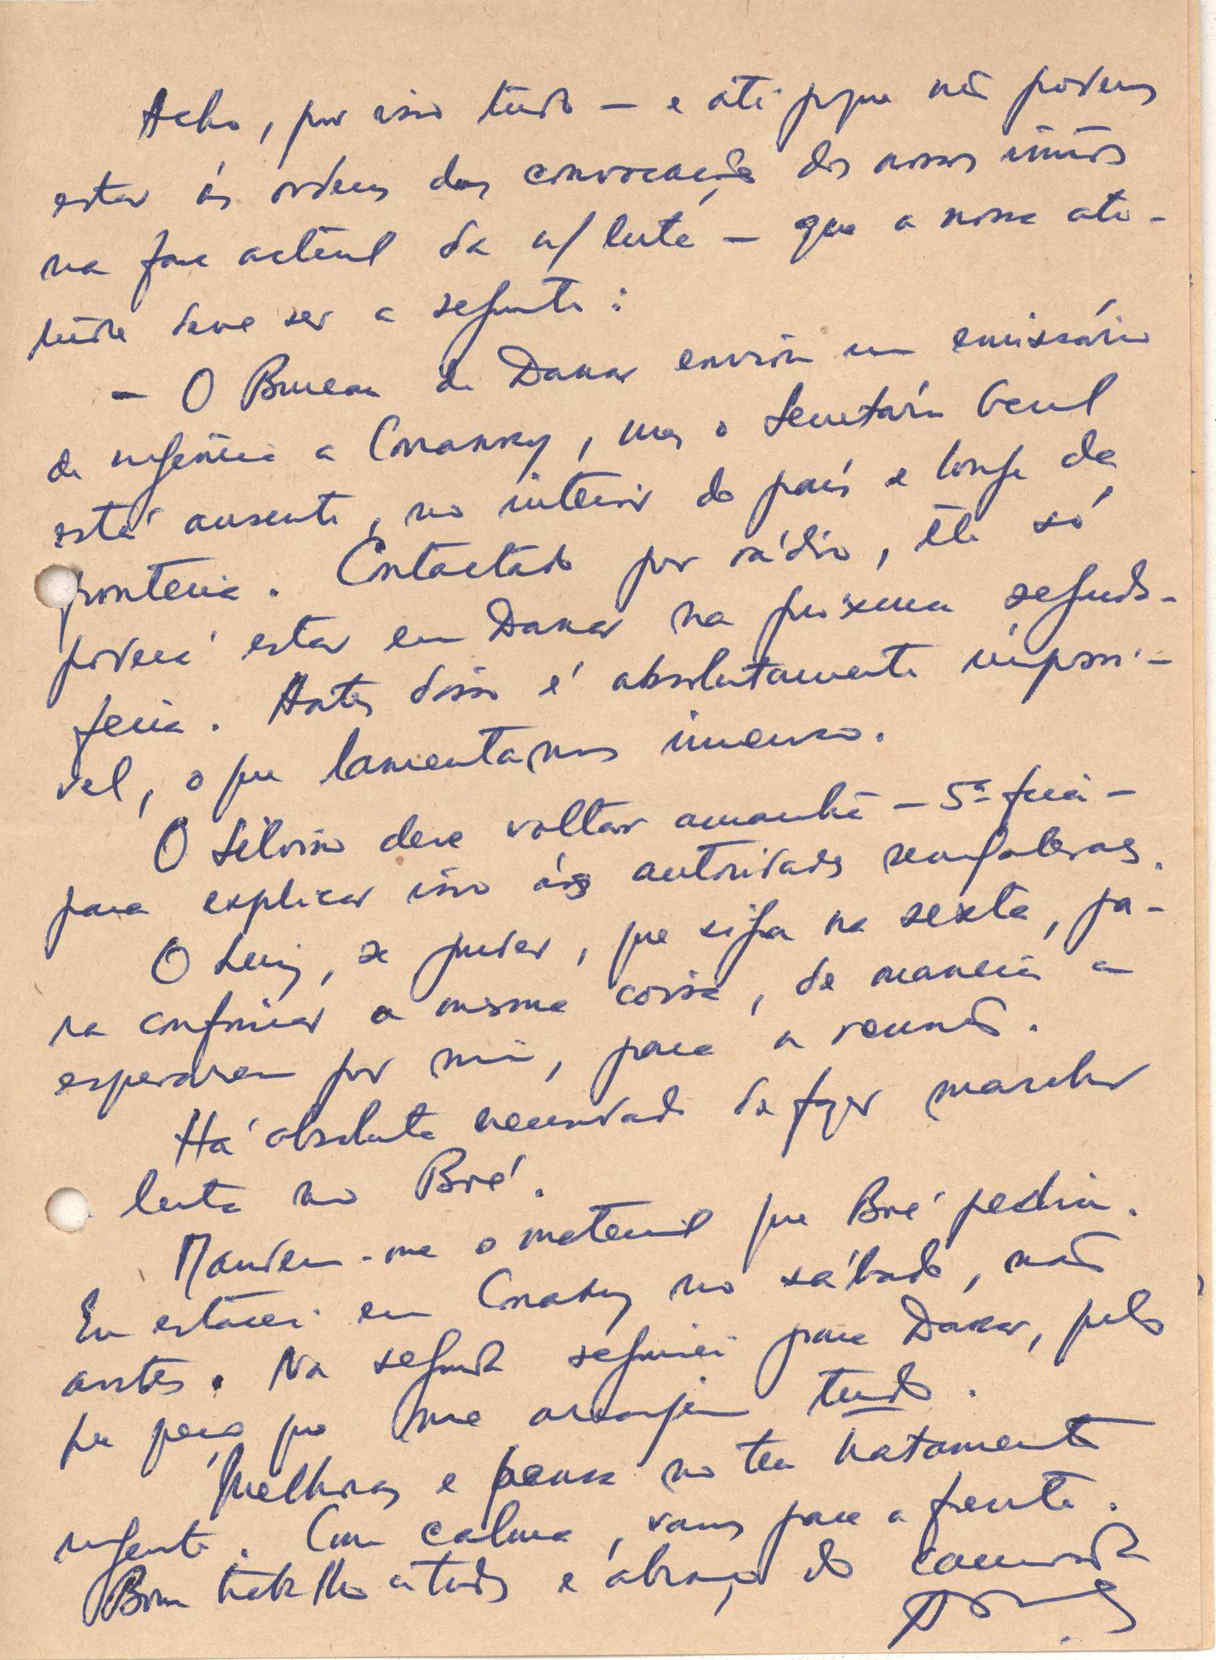 Acho, por isso tudo — e até porque não podemos
estar às ordens das convocações dos nossos irmãos
na fase actual da n/ luta — que a nossa ati-
tude deve ser a seguinte:
— O Bureau de Dakar enviou um emissário
de urgência a Conakry, mas o Secretário Geral
está ausente, no interior do país e longe da
fronteira. Contactado por rádio, êle só
poderá estar em Dakar na próxima segunda-
feira. Antes disso é absolutamente impossí-
vel, o que lamentamos imenso.
O Silvino deve voltar amanhã — 5ª feira —
para explicar isso às autoridades senegalesas.
O Luiz, se puder, que siga na sexta, pa-
ra confirmar a mesma coisa, de maneira a
esperarem por mim, para a reunião.
Há absoluta necessidade de fazer marchar
luta no Boé.
Mandem-me o material que Boé pediu.
Eu estarei em Conakry no sábado, não
antes. Na segunda seguirei para Dakar, pelo
que peço que me arranjem tudo.
Melhoras e pensa no teu tratamento
urgente. Com calma, vamos para a frente.
Bom trabalho a todos e abraço do camarada